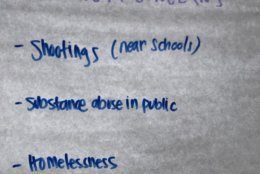 - Shootings (near schools)
- Substance abuse in public
- Homelessness